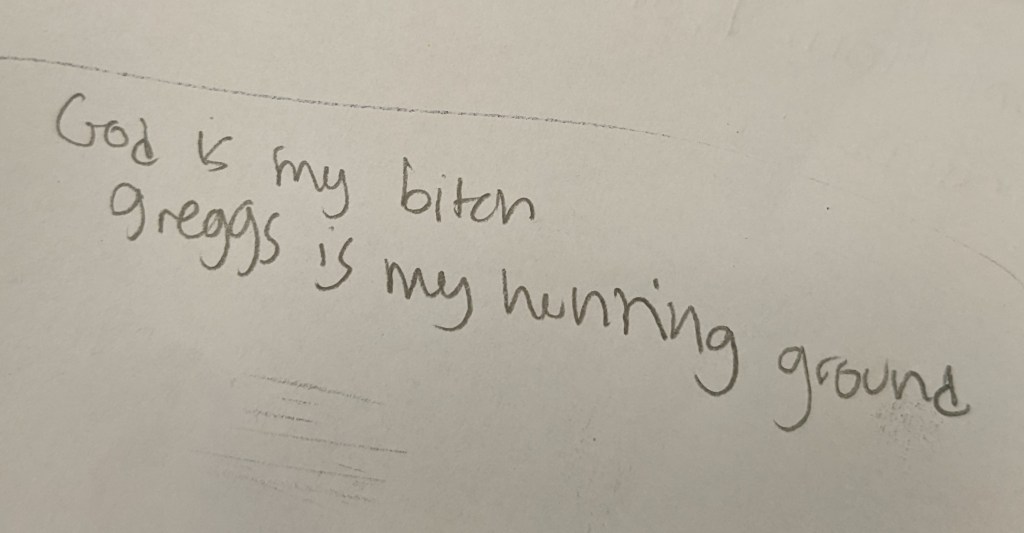 God is my bitch
greggs is my hunting ground